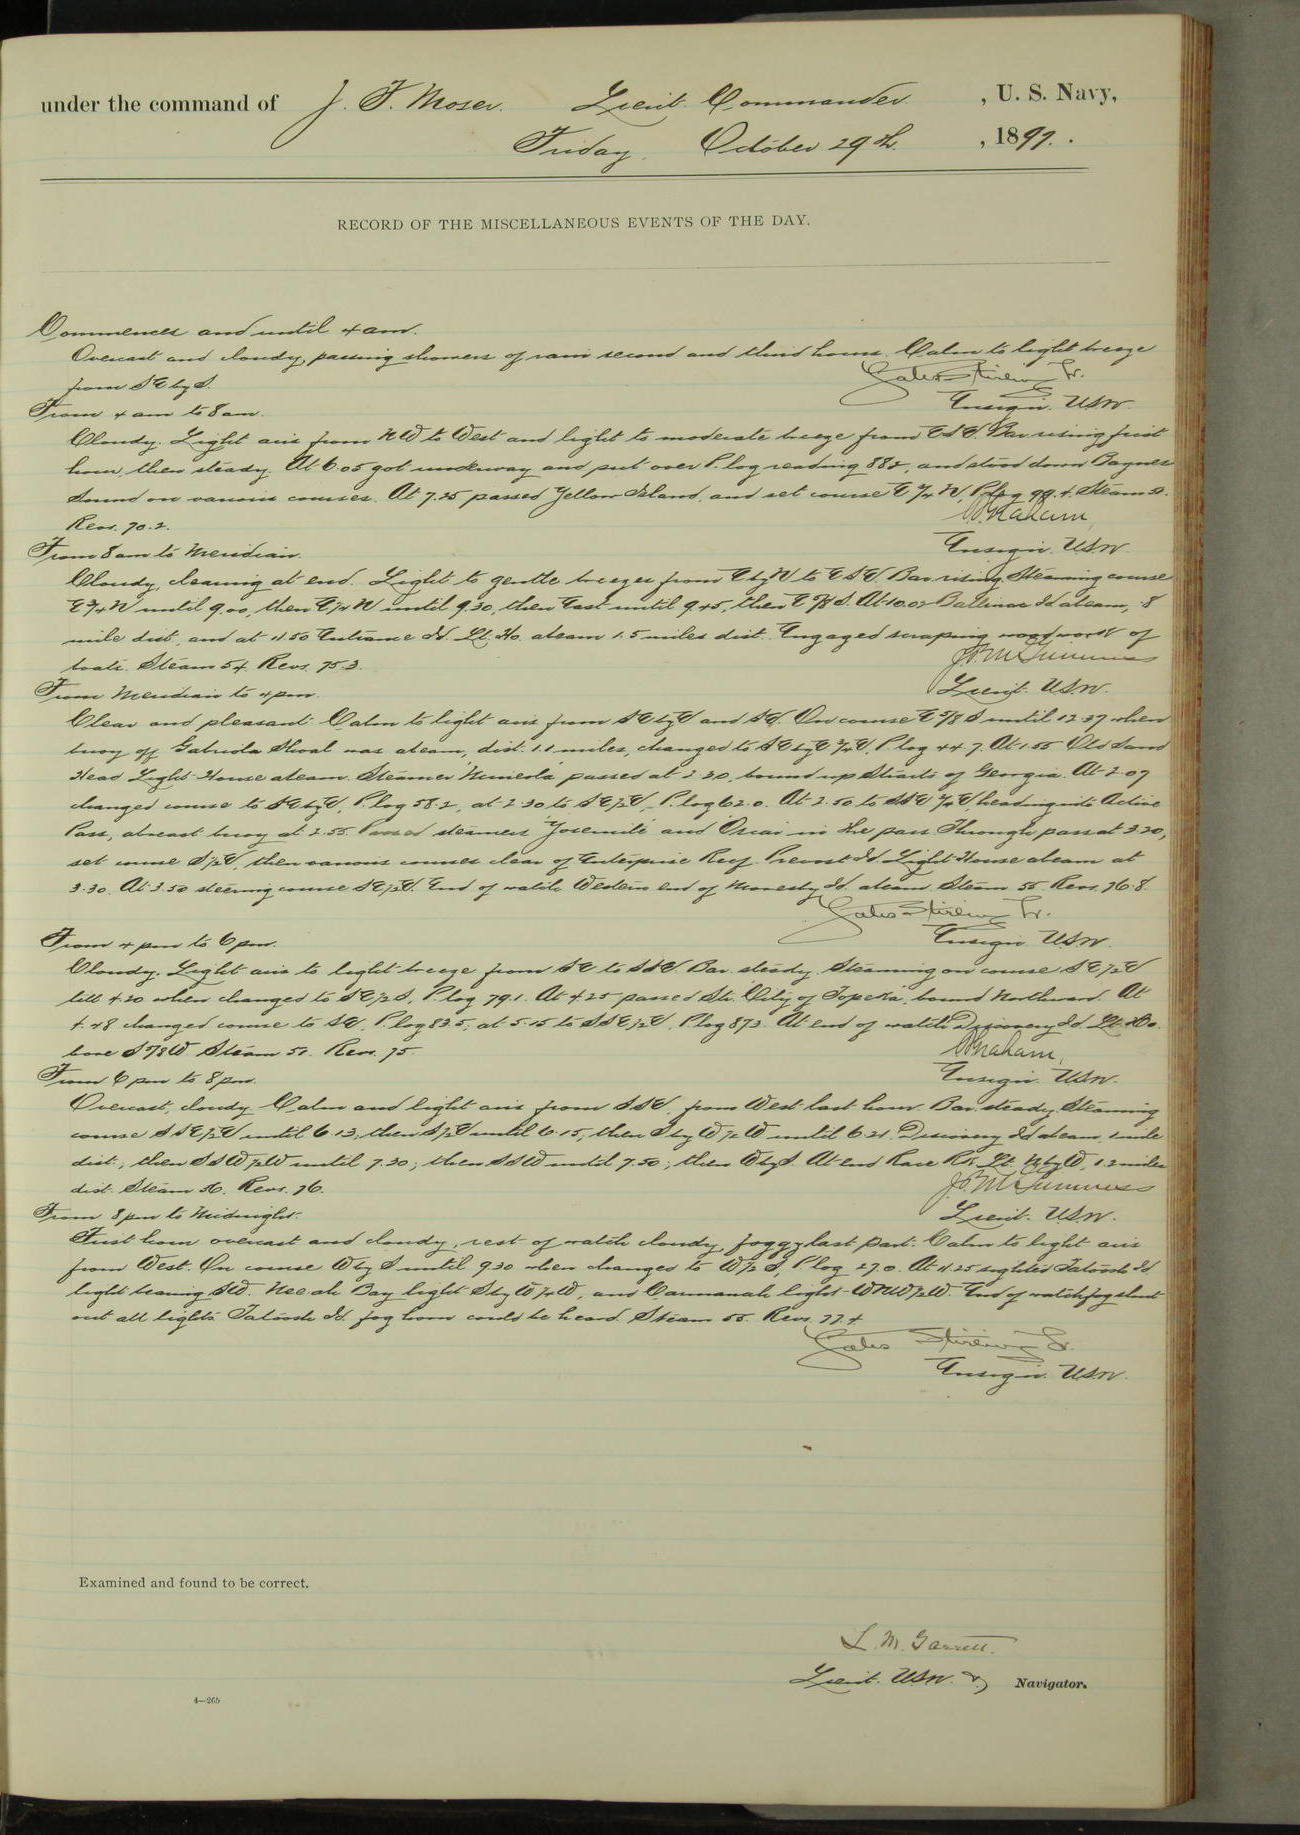 under the command of J. F. Moser. Lieut. Commander , U. S. Navy,
Friday. October 29th. , 1897.
RECORD OF THE MISCELLANEOUS EVENTS OF THE DAY.
Commences and until 4 am.
Overcast and cloudy, passing showers of rain second and third hours. Calm to light breeze
from SE by S.
Yates Stirling Jr.
Ensign. USN.
From 4 am to 8 am.
Cloudy. Light airs from NW to West and light to moderate breeze from ESE. Bar rising first
hour, then steady. At 6.05 got underway and put over P. log reading 88.2, and stood down Baynes
Sound on various courses. At 7.25 passed Yellow Island, and set course E 3/4 N, P. log 99.4. Steam
Revs. 70.2.
Graham,
Ensign. USN.
From 8 am to Meridian.
Cloudy, clearing at end. Light to gentle breezes from E by N to ESE. Bar rising. Steaming course
E 3/4 N until 9.00, then E 1/4 N until 9.30, then East until 9.45, then E 5/8 S. At 10.02 Ballinac Id abeam, .8
mile dist, and at 11.50 Entrance Id Lt. Ho. abeam 1.5 miles dist. Engaged scraping woodwork of
boats. Steam 54. Revs. 75.3.
Lieut. USN.
From Meridian to 4 pm.
Clear and pleasant. Calm to light airs from SE by E and SE. On course E 5/8 S until 12.37 when
buoy off Gabriola Shoal was abeam, dist. 1.1 miles, changed to SE by E 3/4 E, P. log 44.7. At 1.55 Old Sand
Head Light House abeam. Steamer "Mineola" passed at 2.20, bound up Straits of Georgia. At 2.07
changed course to SE by E, P. log 58.2, at 2.30 to SE 1/2 E, P. log 62.0. At 2.50 to SSE 3/4 E, heading into Active
Pass, abreast buoy at 2.55. Passed steamers "Yosemite" and Oscar in the pass. Through pass at 3.20,
set course S 1/2 E, then various courses clear of Enterprise Reef. Prevost Id Light House abeam at
3.30. At 3.50 steering course SE 1/2 E. End of watch Western end of Moresby Id. abeam. Steam 55. Revs. 76.8.
Yates Stirling Jr.
Ensign USN.
From 4 pm to 6 pm.
Cloudy. Light airs to light breeze from SE to SSE. Bar. steady. Steaming on course SE 1/2 E
till 4.20 when changed to SE 1/2 S, P. log 79.1. At 4.25 passed Str. "City of Topeka", bound Northward. At
4.48 changed course to SE, P. log 82.5; at 5.15 to SSE 1/2 E, P. log 87.3. At end of watch Discovery Id Lt. Ho.
bore S 5/8 W Steam 51. Revs. 75.
Graham,
Ensign. USN.
From 6 pm to 8 pm.
Overcast, cloudy. Calm and light airs from SSE, from West last hour. Bar. steady. Steaming
course SSE 1/2 E until 6.13, then S 1/2 E until 6.15, then S by W 1/2 W until 6.31. Discovery Id abeam, 1 mile
dist., then SSW 1/2 W until 7.30; then SSW until 7.50; then W by S. At end Race Rk. Lt. N by W, 1.2 miles
dist. Steam 56. Revs. 76.
Lieut. USN.
From 8 pm to Midnight.
First hour overcast and cloudy, rest of watch cloudy, foggy last part. Calm to light airs
from West. On course W by S until 9.30 when changed to W 1/2 S, P. log 27.0. At 11.25 sighted Tatoosh Id.
light bearing SW. Neeah Bay light S by W 1/4 W, and Carmanah light WNW 1/2 W. End of watch fog shut
out all lights. Tatoosh Id. fog horn could be heard. Steam 55. Revs. 77.4
Yates Stirling Jr.
Ensign. USN.
Examined and found to be correct.
L. M. Garrett.
Lieut. USN. & Navigator.
4—265